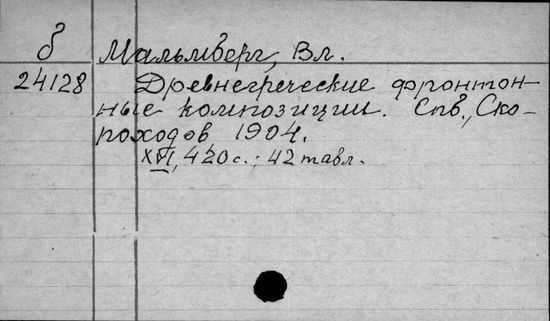 б Мальмберг, Вл.
24128 Древнегреческие фронтон-
ные композиции. Спб., Ско-
роходов 1904.
XVI, 420 с.; 42 табл.